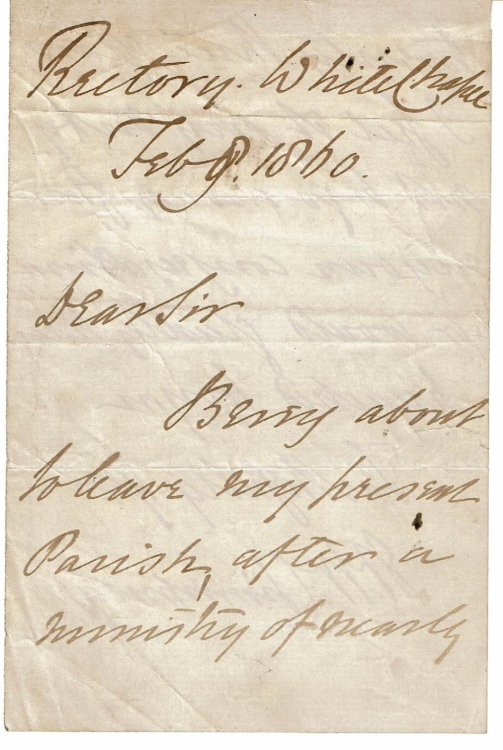 Rectory. White Chapel
Feb 9. 1860.
Dear Sir
Being about
to leave my present
Parish, after a
ministry of nearly